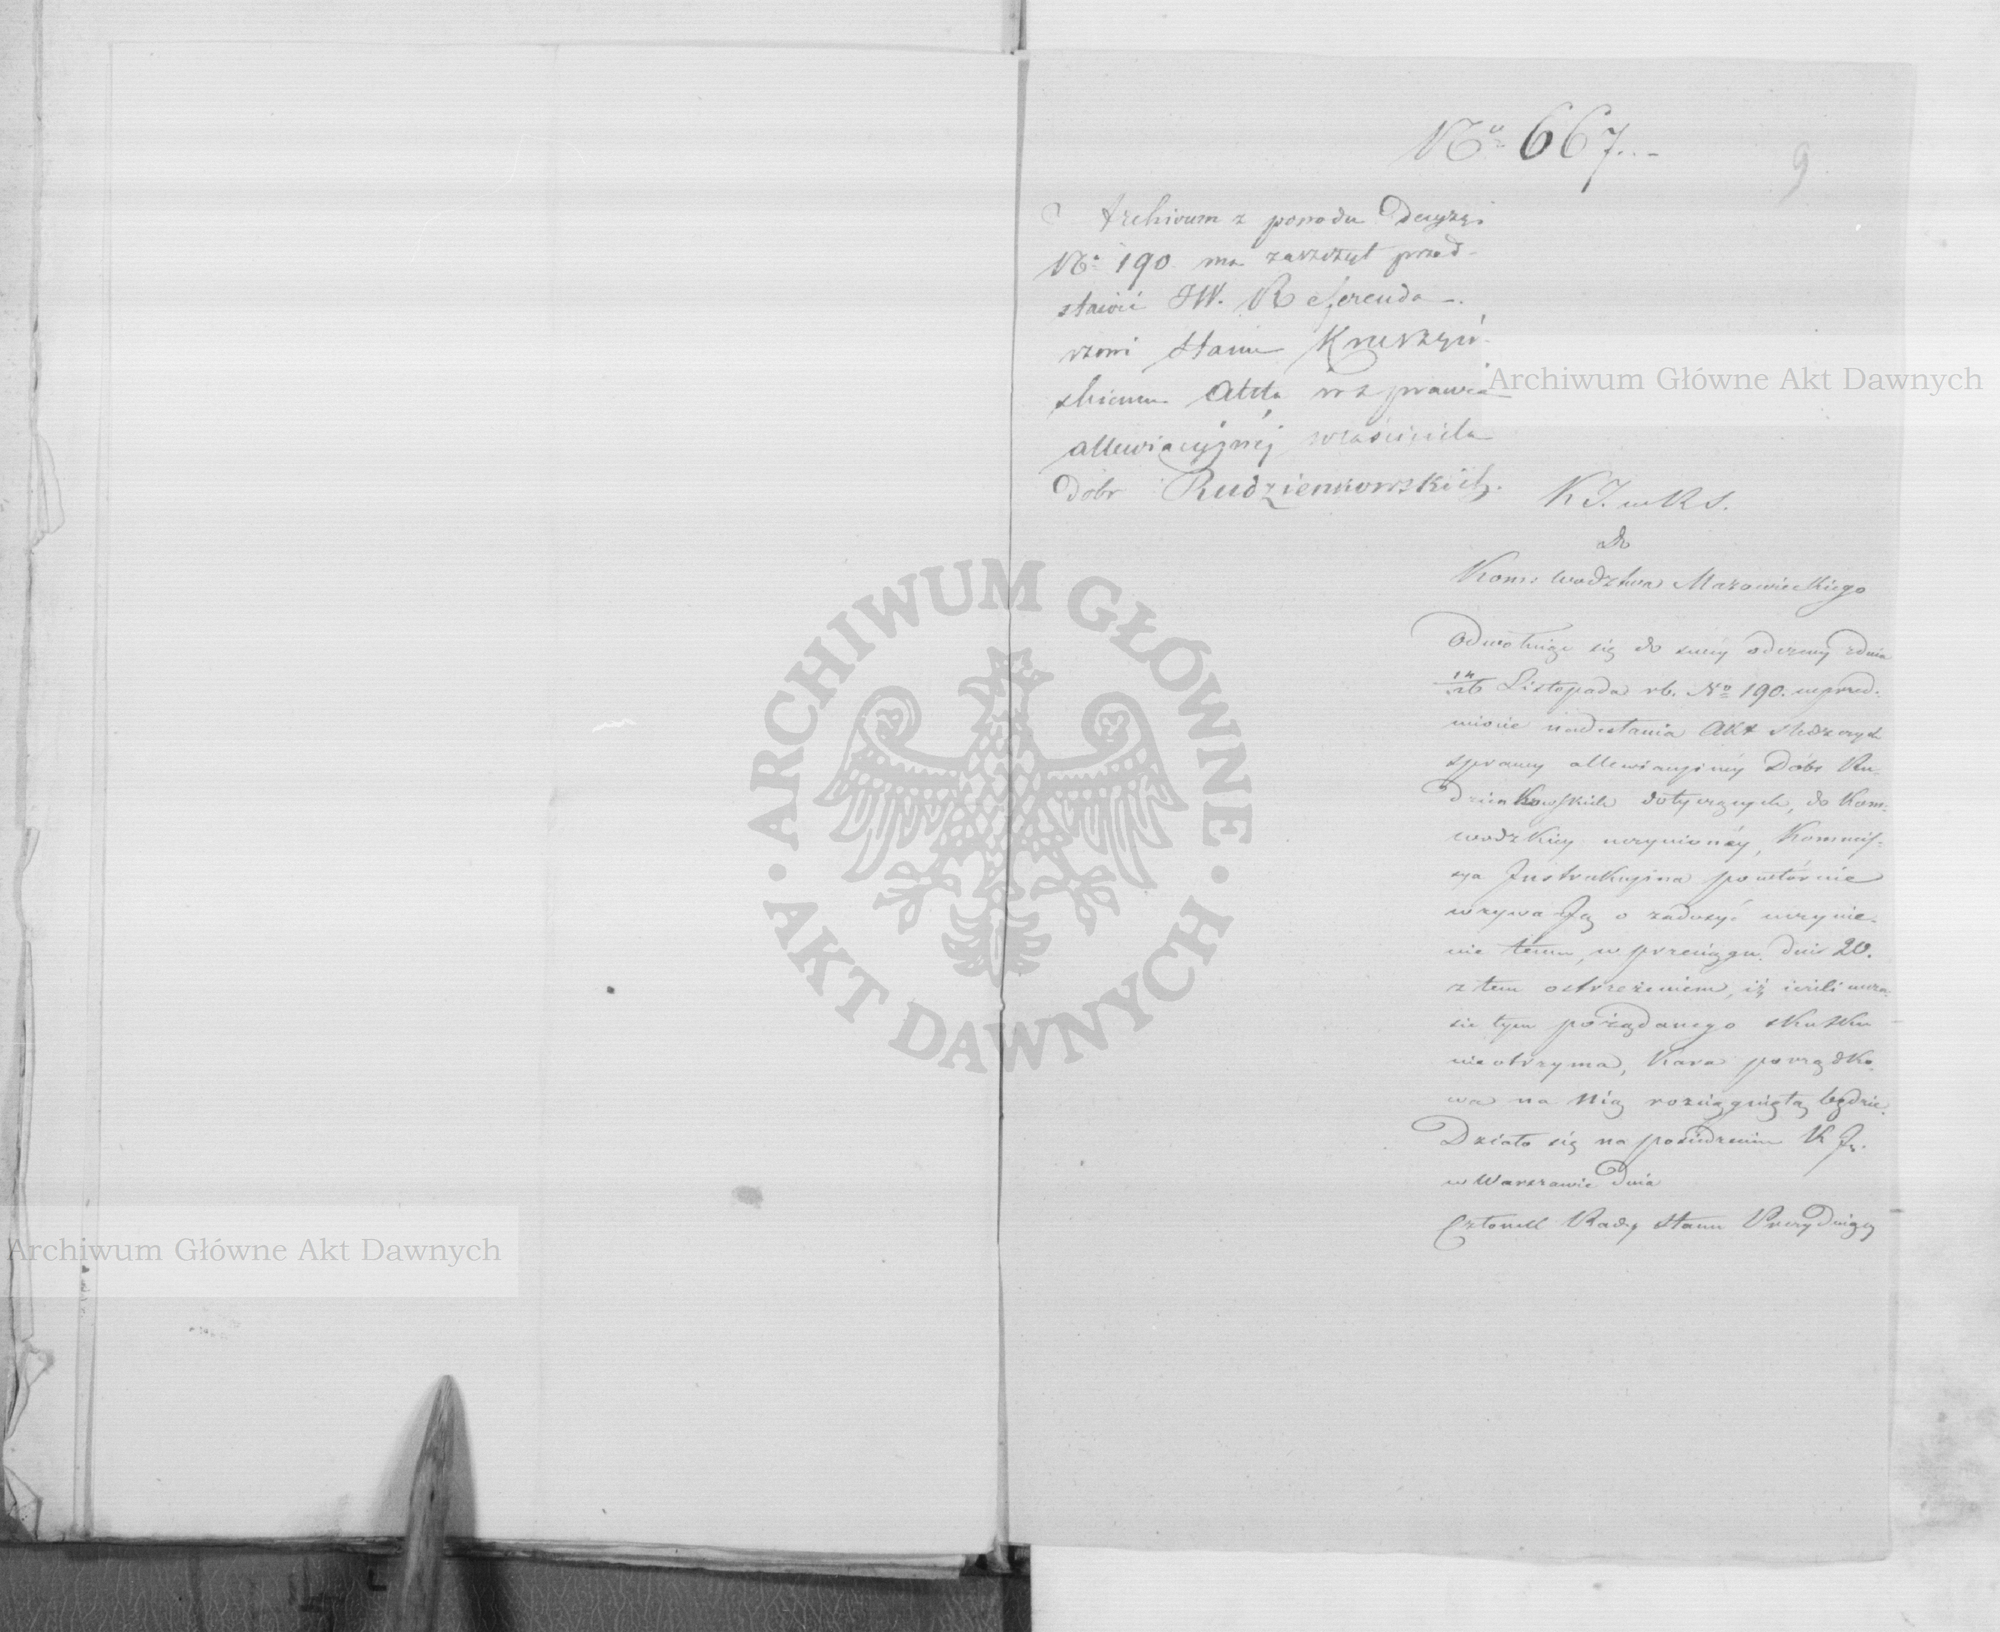 No 667.
9
Archivum z powodu Decyzyi
No 190 ma zaszczyt przed-
stawić JW. Referenda-
rzowi Stanu Kruszyń-
skiemu Akta w sprawie
allewiacyjnéj właściciela
Dóbr Rudzienkowskich.
K J. w R S.
do
Kom: Wodztwa Mazowieckiego
Odwołuiąc się do swéy odezwy zdnia
14/26 Listopada rb. No 190. wprzed-
miocie nadesłania Akt śledczych
sprawy allewiacyinéy Dóbr Ru-
dzienkowskich dotyczących, do Kom:
wodzkiey uczynionéy, Kommis-
sya Instrukcyina powtórnie
wzywa Ją o zadosyć uczynie-
nie temu, w przeciągu dni 20.
z tem ostrzeżeniem, iż ieżeli wcza-
sie tym pożądanego skutku
nieotrzyma, Kara porządko-
wa na Nią rozciągniętą będzie.
Działo się na posiedzeniu K J.
w Warszawie dnia
Członek Rady Stanu Prezyduiący
Archiwum Główne Akt Dawnych
Archiwum Główne Akt Dawnych
ARCHIWUM GŁÓWNE
AKT DAWNYCH